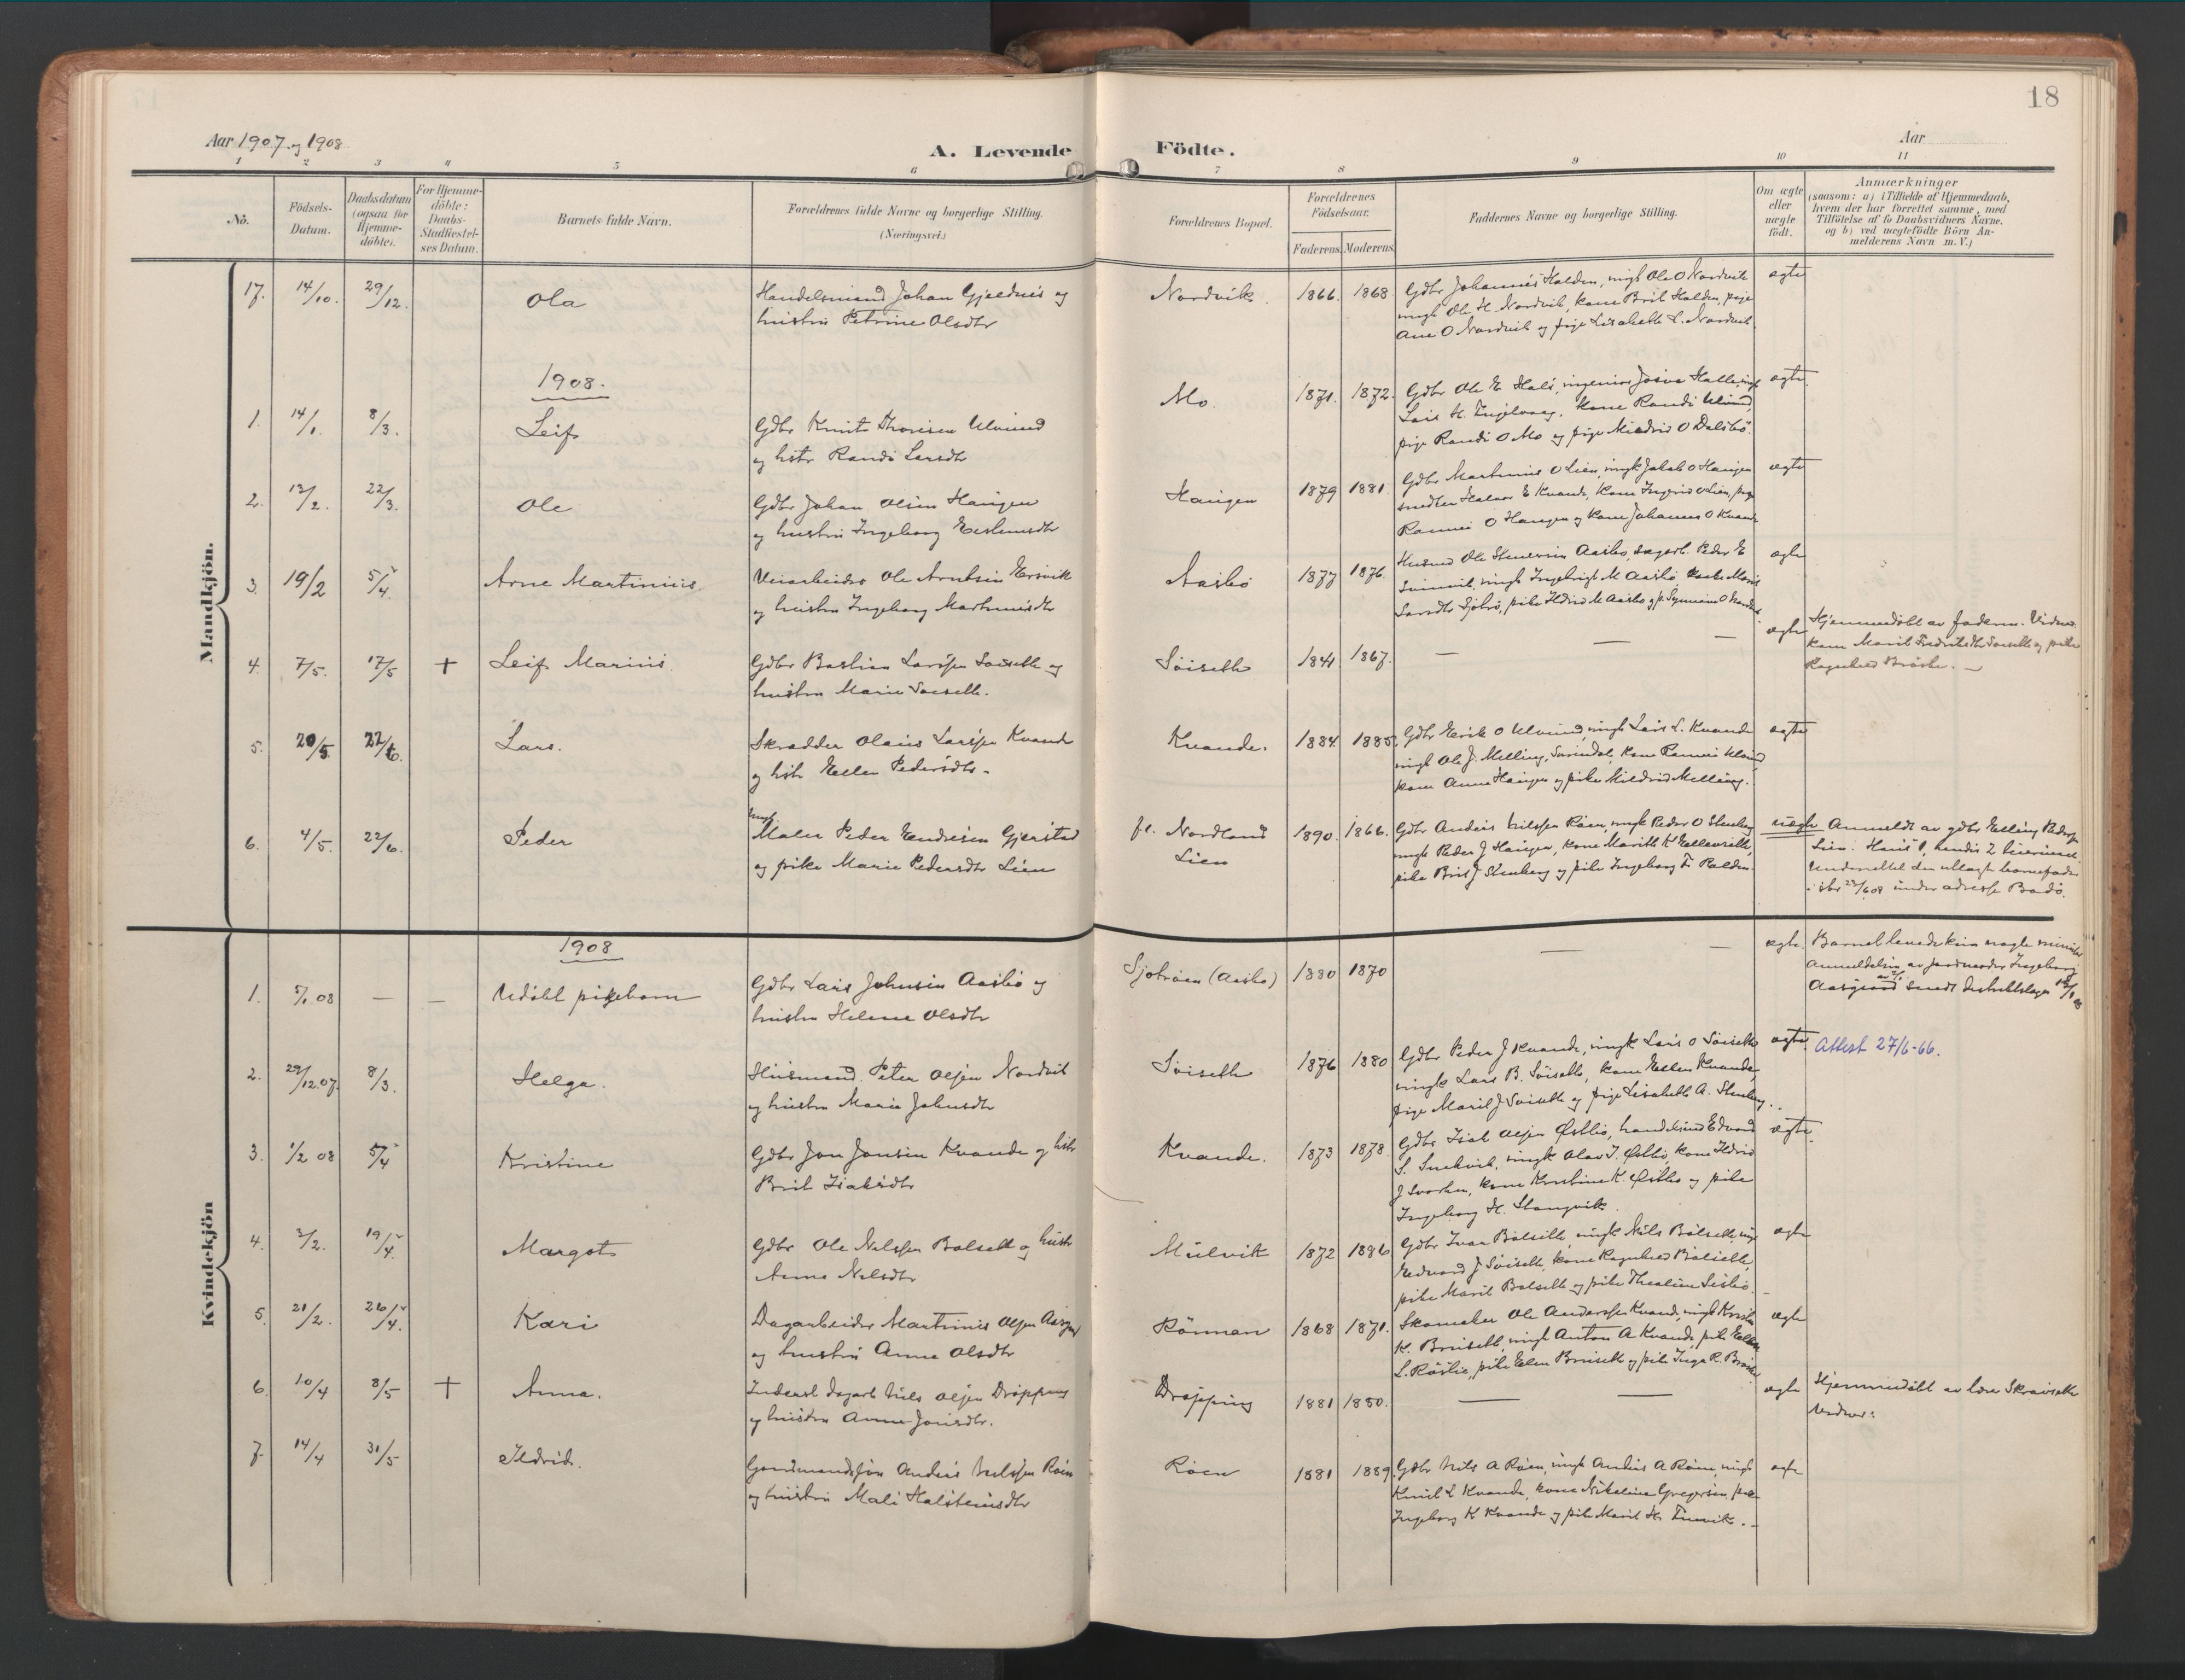 18
Aar 1907 og 1908
A. Levende Födte.
Aar
1 2 3 4 5 6 7 8 9 10 11
No.
Födsels-Datum.
Daabsdatum (ogsaa for Hjemme-döbte).
For Hjemme-döbte: Daabs-Stadfæstel-ses Datum.
Barnets fulde Navn.
Forældrenes fulde Navne og borgerlige Stilling. (Næringsvei.)
Forældrenes Bopæl.
Forældrenes Födselsaar.
Faderens. Moderens.
Faddernes Navne og borgerlige Stilling.
Om ægte eller uægte födt.
Anmærkninger
(saasom: a) i Tilfælde af Hjemmedaab,
hvem der har forrettet samme, med
Tilföielse af to Daabsvidners Navne,
og b) ved uægtefödte Börn An-
melderens Navn m. V.)
Mandkjön.
17. 14/10. 29/12. Ola
Handelsmand Johan Gjeldnes og
hustru Petrine Olsdtr
Nordvik. 1866. 1868
Gdbr Johannes Halden, ungk Ole O Nordvik
ungk Ole H. Nordvik, kone Brit Halden, pige
Ane O Nordvik og pige Lisabeth L. Nordvik
ægte
1908.
1. 14/1. 8/3. Leif
Gdbr Knut Thoresen Ulvund
og hstr Randi Larsdtr
Mo. 1871. 1872.
Gdbr Ole E Hals, ingeniør Halle, ungk
Lars H. Ingelvaag, kone Randi Ulvund,
pige Randi O Mo og pige O Dalsbö.
ægte.
2. 13/2. 22/3. Ole
Gdbr Johan Olsen Haugen
og hustru Ingeborg
Haugen 1879 1881.
Gdbr Martinus O Lien, ungk Jakob O Haugen
E Kvande, kone Ingrid O Lien, pige
O Haugen og kone Johanna O Kvande
ægte
3. 19/2 5/4 Arne Martinus.
Veiarbeider Ole Arntsen Ersvik
og hustru Ingeborg Martinusdtr
Aasbö 1877 1876.
Husmd Ole Aasbo, Peder E
ungk Ingebrigt M Aasbö, Marit
Larsdtr Sjöbrö, pike Ildrid M Aasbo og p.
ægte
4. 7/5. 17/5 + Leif Marius.
Gdbr Bastian Larssen Söiseth og
hustru Marie Soiseth.
Söiseth 1841 1867.
— — —
ægte
Hjemmedöbt av faderen. Vidner:
kone Marit Soiseth og pike
Ragnhild —
5. 20/5. 22/6. Lars.
Skrædder Olaus Larssen Kvande
og hstr Ellen Pedersdtr.
Kvande. 1884. 1885.
Gdbr Erik O Ulvund, ungk Lars L. Kvande
ungk Ole J. Melling, Surendal, kone Ulvund,
kone Anne Haugen og pike Mildrid Melling.
ægte
6. 4/5. 22/6. Peder
Ungk.
Maler Peder Endresen Gjerstad
og pike Marie Pedersdtr Lien
fl. Nordland
Lien
1890. 1866.
Gdbr Anders Nilssen Röen, ungk Peder O Stenberg
ungk Peder J Haugen, kone Marith K
pike Brit J Stenberg og pike Ingeborg
uægte
Anmeldt av gdbr Elling Pedersen
Lien. Hans 1, hendes 2
Underrettet den utlagte barnefader
i brev 27/6 08 under adresse Bodö.
Kvindekjön
1908
1. 5/1 08 — — Udöbt pigebarn
Gdbr Lars Johnsen Aasbö og
hustru Helene Olsdtr
Sjobröen (Aasbo) 1880 1870
— —
ægte.
Barnet levede kun nogle minutter
Anmeldelse av jordmoder Ingeborg
Aasgaard sendt distriktslægen
2. 29/12.07. 8/3. Helga.
Husmand Peter Olsen Nordvik
og hustru Marie Johnsdtr
Söiseth 1876 1880
Gdbr Peder J Kvande, ungk Lars O Söiseth
ungk Lars B. Söiseth, kone Ellen Kvande,
pige Marit J Soiseth og pige Lisabeth A. Stenberg.
ægte. Attest 27/6-66.
3. 1/2 08 5/4 Kristine
Gdbr Jon Jonsen Kvande og hstr
Brit Isaksdtr
Kvande. 1873 1878.
Gdbr Isak Olsen Østbö, handelsmd Edvard
S. ungk Olav I. Østbö, kone Ildrid
J kone Kristine K. Østbo og pike
Ingeborg H. Stangvik.
ægte.
4. 3/2. 19/4. Margot
Gdbr Ole Nilssen Bolseth og hustr
Anna Nilsdtr
Mulvik 1872 1886
Gdbr Ivar Bolseth, ungk Nils Bolseth, ung
Edvard J Söiseth, kone Ragnhild Bolseth,
pike Marit Bolseth og pike
ægte
5. 21/2. 26/4. Kari
Dagarbeider Martinus Olsen
og hustru Anne Olsdtr
Rönnan 1868 1871.
Skomaker Ole Anderssen Kvande, ungk
K. Bruseth, ungk Anton A Kvande, pike Ellen
L. Röslie, pike Elen Bruseth og pike Inga R.
ægte
6. 10/4 8/5 + Anna.
Inderst dagarb Nils Olsen Dröpping
og hustru Anne Jonsdtr.
Dröpping 1881 1880.
— —
ægte
Hjemmedöbt av
Vidner:
7. 14/4 31/5 Ildrid.
Gaardmandssön Anders Nilssen Röen
og hustru Mali Halsteinsdtr
Röen 1881 1889
Gdbr Nils A Röen, ungk Anders A Röen, ungk
Knut L Kvande, kone Nikoline Gregersen, pike
Ingeborg K Kvande og pike Marit H.
ægte